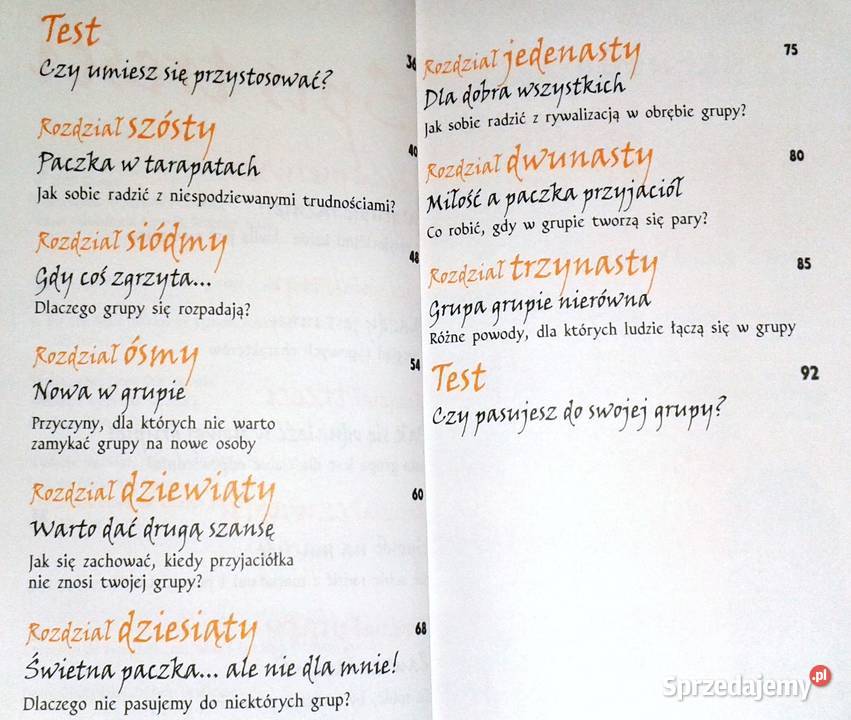 Test
36
Czy umiesz się przystosować?
Rozdział szósty
40
Paczka w tarapatach
Jak sobie radzić z niespodziewanymi trudnościami?
Rozdział siódmy
48
Gdy coś zgrzyta...
Dlaczego grupy się rozpadają?
Rozdział ósmy
54
Nowa w grupie
Przyczyny, dla których nie warto
zamykać grupy na nowe osoby
Rozdział dziewiąty
60
Warto dać drugą szansę
Jak się zachować, kiedy przyjaciółka
nie znosi twojej grupy?
Rozdział dziesiąty
68
Świetna paczka... ale nie dla mnie!
Dlaczego nie pasujemy do niektórych grup?
Rozdział jedenasty
75
Dla dobra wszystkich
Jak sobie radzić z rywalizacją w obrębie grupy?
Rozdział dwunasty
80
Miłość a paczka przyjaciół
Co robić, gdy w grupie tworzą się pary?
Rozdział trzynasty
85
Grupa grupie nierówna
Różne powody, dla których ludzie łączą się w grupy
Test
92
Czy pasujesz do swojej grupy?
Sprzedajemy.pl